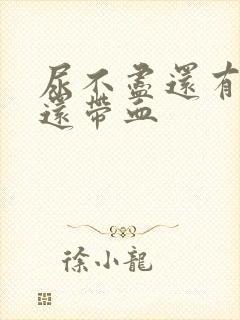 尿不盡還有
還帶血
徐小龍